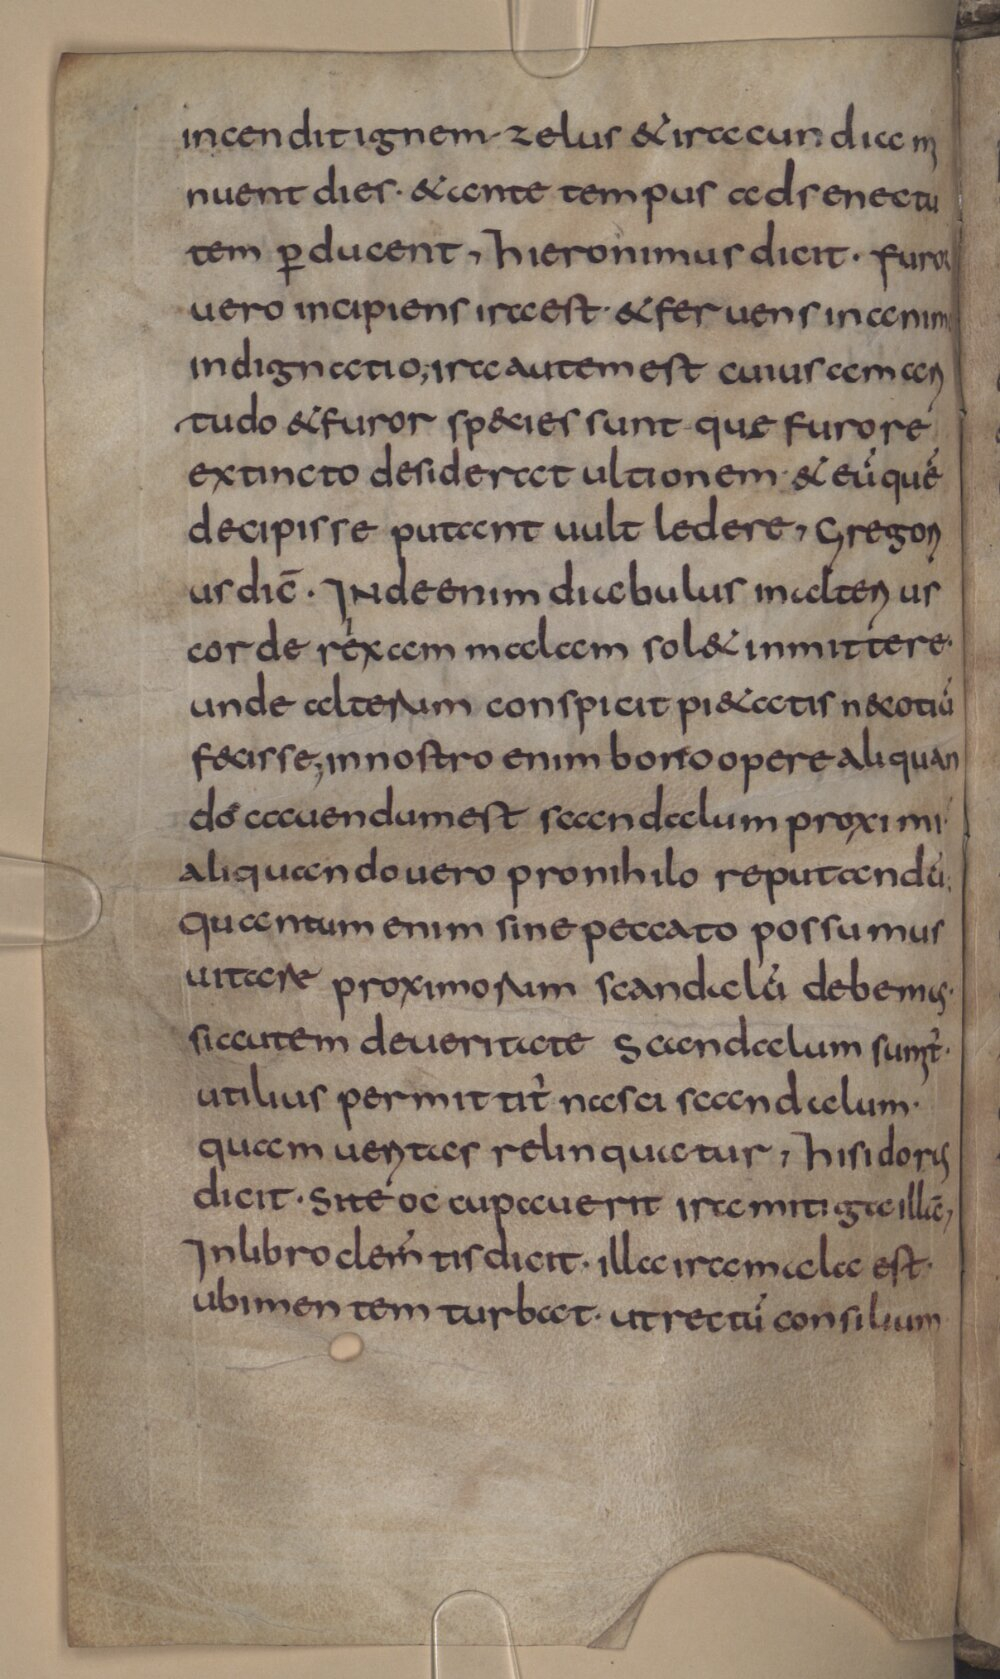 incendit ignem· zelus & iracundia mi
nuent dies· & ante tempus ad senectu
tem ꝑducent, hieronimus dicit· furor
uero incipiens ira est· & feruens in anim
indignatio; ira autem est cuius amari
tudo & furor sp&ies sunt· que furore
extincto desiderat ultionem· & eū quē
decipisse putant uult ledere, Gregori
us dic̄· INde enim diabulus in alterius
corde rexam malam sol& inmittere·
unde alterum conspicit pi&atis n&otiū
fecisse; in nostro enim bono opere aliquan
do cauendum est scandalum proximi·
aliquando uero pro nihilo reputandū;
quantum enim sine peccato possumus
uitare proximorum scandalū debemus·
si autem de ueritate Scandalum sumit̄·
utilius permittit̄ nasci scandalum·
quam ueritas relinquatur, hisidorus
dicit· Si te oc cupauerit ira mitiga illā,
In libro clem̄tis dicit· illa ira mala est·
ubi mentem turbat· ut rectū consilium